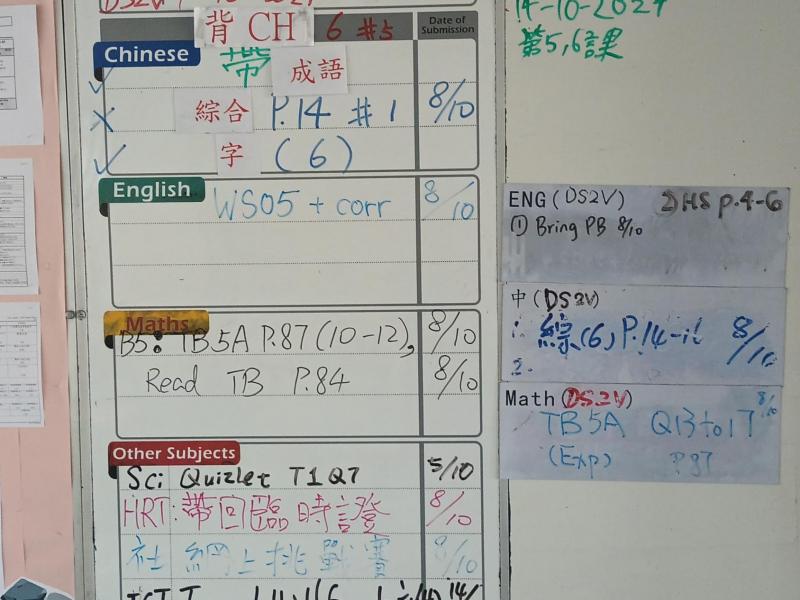 背 CH 6 #5
Date of Submission
Chinese
帶 成語
✓
綜合 P.14 #1 8/10
✗
字 (6)
✓
English
WS05 + corr 8/10
Maths
B5: TB 5A P.87 (10-12), 8/10
Read TB P.84 8/10
Other Subjects
Sci Quizlet T1 Q7 5/10
HRT: 帶回臨時證 8/10
社 網上挑戰賽 8/10
14-10-2024
第5,6課
ENG (DS2V) 2) HS P.4-6
① Bring PB 8/10
中 (DS2V)
1. 綜(6) P.14 8/10
2.
Math (DS2V) 8/10
TB 5A Q13 to 17
(Exp) P.87